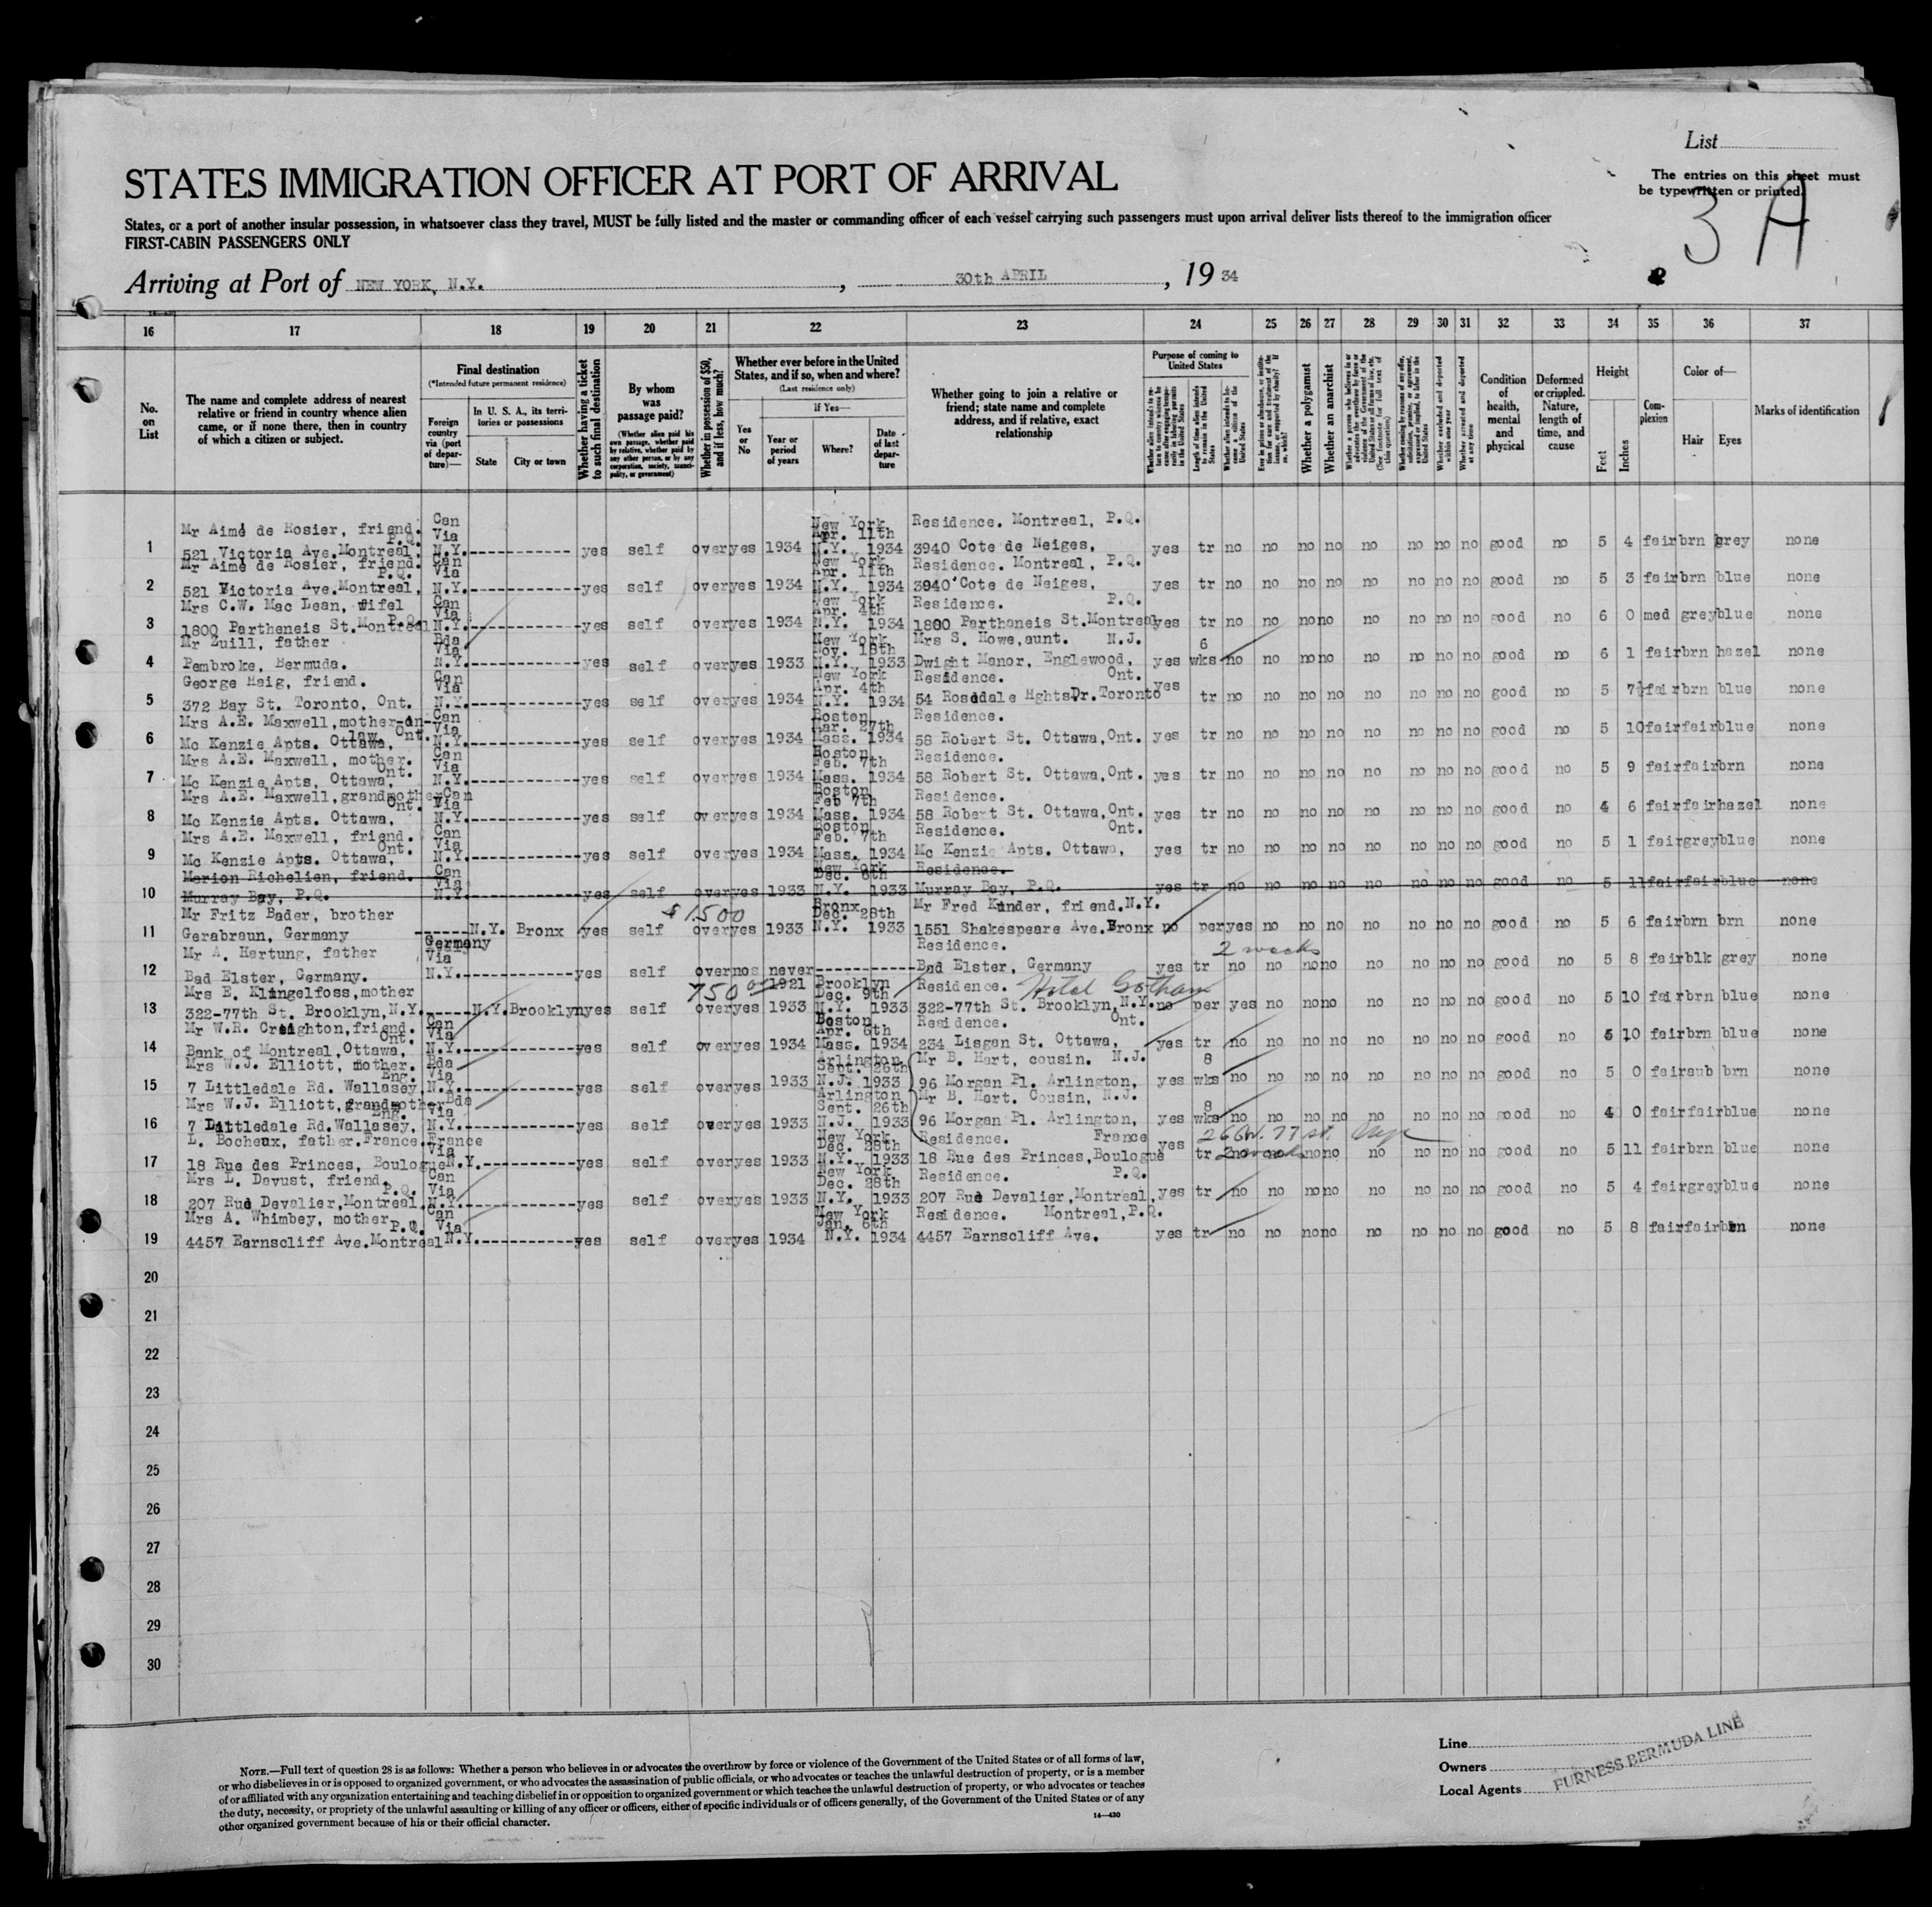 List
STATES IMMIGRATION OFFICER AT PORT OF ARRIVAL
The entries on this sheet must
be typewritten or printed.
3 A
States, or a port of another insular possession, in whatsoever class they travel, MUST be fully listed and the master or commanding officer of each vessel carrying such passengers must upon arrival deliver lists thereof to the immigration officer
FIRST-CABIN PASSENGERS ONLY
Arriving at Port of NEW YORK, N.Y. , 30th APRIL , 19 34
16 17 18 19 20 21 22 23 24 25 26 27 28 29 30 31 32 33 34 35 36 37
No. on List
The name and complete address of nearest relative or friend in country whence alien came, or if none there, then in country of which a citizen or subject.
Final destination
(*Intended future permanent residence)
Foreign country via (port of departure)—
In U. S. A., its territories or possessions
State
City or town
Whether having a ticket to such final destination
By whom was passage paid?
(Whether alien paid his own passage, whether paid by relative, whether paid by any other person, or by any corporation, society, municipality, or government)
Whether in possession of $50, and if less, how much?
Whether ever before in the United States, and if so, when and where?
(Last residence only)
Yes or No
If Yes—
Year or period of years
Where?
Date of last departure
Whether going to join a relative or friend; state name and complete address, and if relative, exact relationship
Purpose of coming to United States
Length of time alien intends to remain in the United States
Whether a polygamist
Whether an anarchist
Whether excluded and deported within one year
Whether arrested and deported at any time
Condition of health, mental and physical
Deformed or crippled. Nature, length of time, and cause
Height
Feet
Inches
Complexion
Color of—
Hair
Eyes
Marks of identification
Mr Aimé de Rosier, friend. Can New York Residence. Montreal, P.Q.
P.Q. Via Apr. 11th
1 521 Victoria Ave. Montreal, N.Y. yes self over yes 1934 N.Y. 1934 3940 Cote de Neiges, yes tr no no no no no no no no good no 5 4 fair brn grey none
Mr Aimé de Rosier, friend. Can New York Residence. Montreal, P.Q.
P.Q. Via Apr. 11th
2 521 Victoria Ave. Montreal, N.Y. yes self over yes 1934 N.Y. 1934 3940 Cote de Neiges, yes tr no no no no no no no no good no 5 3 fair brn blue none
Mrs C.W. Mac Lean, Can New York Residence. P.Q.
P.Q. Via Apr. 4th
3 1800 Partheneis St. Montreal N.Y. yes self over yes 1934 N.Y. 1934 1800 Partheneis St. Montreal yes tr no no no no no no no no good no 6 0 med grey blue none
Mr Zuill, father Bda New York Mrs S. Howe, aunt. N.J.
Via Nov. 18th 6
4 Pembroke, Bermuda. N.Y. yes self over yes 1933 N.Y. 1933 Dwight Manor, Englewood, yes wks no no no no no no no no good no 6 1 fair brn hazel none
George Haig, friend. Can New York Residence. Ont.
Via Apr. 4th
5 372 Bay St. Toronto, Ont. N.Y. yes self over yes 1934 N.Y. 1934 54 Rosedale Hghts Dr. Toronto yes tr no no no no no no no no good no 5 7½ fair brn blue none
Mrs A.E. Maxwell, mother-in- Can Boston Residence.
law. Ont. Via Mar. 27th
6 Mc Kenzie Apts. Ottawa, N.Y. yes self over yes 1934 Mass. 1934 58 Robert St. Ottawa, Ont. yes tr no no no no no no no no good no 5 10 fair fair blue none
Mrs A.E. Maxwell, mother. Can Boston Residence.
Ont. Via Feb. 7th
7 Mc Kenzie Apts, Ottawa, N.Y. yes self over yes 1934 Mass. 1934 58 Robert St. Ottawa, Ont. yes tr no no no no no no no no good no 5 9 fair fair brn none
Mrs A.E. Maxwell, grandmother Can Boston Residence.
Ont. Via Feb 7th
8 Mc Kenzie Apts. Ottawa, N.Y. yes self over yes 1934 Mass. 1934 58 Robert St. Ottawa, Ont. yes tr no no no no no no no no good no 4 6 fair fair hazel none
Mrs A.E. Maxwell, friend. Can Boston Residence. Ont.
Ont. Via Feb. 7th
9 Mc Kenzie Apts. Ottawa, N.Y. yes self over yes 1934 Mass. 1934 Mc Kenzie Apts. Ottawa, yes tr no no no no no no no no good no 5 1 fair grey blue none
Marion Richelien, friend. Can New York Residence.
Via Dec. 6th
10 Murray Bay, P.Q. N.Y. yes self over yes 1933 N.Y. 1933 Murray Bay, P.Q. yes tr no no no no no no no no good no 5 11 fair fair blue none
Mr Fritz Bader, brother $1500 Bronx Mr Fred Kinder, friend. N.Y.
Dec. 28th
11 Gerabraun, Germany N.Y. Bronx yes self over yes 1933 N.Y. 1933 1551 Shakespeare Ave. Bronx no per yes no no no no no no no good no 5 6 fair brn brn none
Mr A. Hartung, father Germany Residence. 2 weeks
Via
12 Bad Elster, Germany. N.Y. yes self over no never Bad Elster, Germany yes tr no no no no no no no no good no 5 8 fair blk grey none
Mrs E. Klingelfoss, mother 750 00 1921 Brooklyn Residence. Hotel Gotham
Dec. 9th
13 322-77th St. Brooklyn, N.Y. N.Y. Brooklyn yes self over yes 1933 N.Y. 1933 322-77th St. Brooklyn, N.Y. no per yes no no no no no no no good no 5 10 fair brn blue none
Mr W.R. Creighton, friend. Can Boston Residence. Ont.
Ont. Via Apr. 6th
14 Bank of Montreal, Ottawa, N.Y. yes self over yes 1934 Mass. 1934 234 Lisgan St. Ottawa, yes tr no no no no no no no no good no 5 10 fair brn blue none
Mrs W.J. Elliott, mother. Bda Arlington Mr B. Hart, cousin. N.J.
Eng. Via Sept. 26th 8
15 7 Littledale Rd. Wallasey, N.Y. yes self over yes 1933 N.J. 1933 96 Morgan Pl. Arlington, yes wks no no no no no no no no good no 5 0 fair aub brn none
Mrs W.J. Elliott, grandmother Bda Arlington Mr B. Hart. Cousin, N.J.
Eng. Via Sept. 26th 8
16 7 Littledale Rd. Wallasey, N.Y. yes self over yes 1933 N.J. 1933 96 Morgan Pl. Arlington, yes wks no no no no no no no no good no 4 0 fair fair blue none
L. Bocheux, father. France. France New York Residence. France 26 W. 77 st.
Via Dec. 28th
17 18 Rue des Princes, Boulogne N.Y. yes self over yes 1933 N.Y. 1933 18 Rue des Princes, Boulogne yes tr no no no no no no no no good no 5 11 fair brn blue none
Mrs L. Davust, friend. Can New York Residence. P.Q.
P.Q. Via Dec. 28th
18 207 Rue Devalier, Montreal, N.Y. yes self over yes 1933 N.Y. 1933 207 Rue Devalier, Montreal, yes tr no no no no no no no no good no 5 4 fair grey blue none
Mrs A. Whimbey, mother Can New York Residence. Montreal, P.Q.
P.Q. Via Jan. 6th
19 4457 Earnscliff Ave. Montreal N.Y. yes self over yes 1934 N.Y. 1934 4457 Earnscliff Ave. yes tr no no no no no no no no good no 5 8 fair fair brn none
20
21
22
23
24
25
26
27
28
29
30
NOTE.—Full text of question 28 is as follows: Whether a person who believes in or advocates the overthrow by force or violence of the Government of the United States or of all forms of law,
or who disbelieves in or is opposed to organized government, or who advocates the assassination of public officials, or who advocates or teaches the unlawful destruction of property, or is a member
of or affiliated with any organization entertaining and teaching disbelief in or opposition to organized government or which teaches the unlawful destruction of property, or who advocates or teaches
the duty, necessity, or propriety of the unlawful assaulting or killing of any officer or officers, either of specific individuals or of officers generally, of the Government of the United States or of any
other organized government because of his or their official character.
14—430
Line
Owners
Local Agents
FURNESS BERMUDA LINE